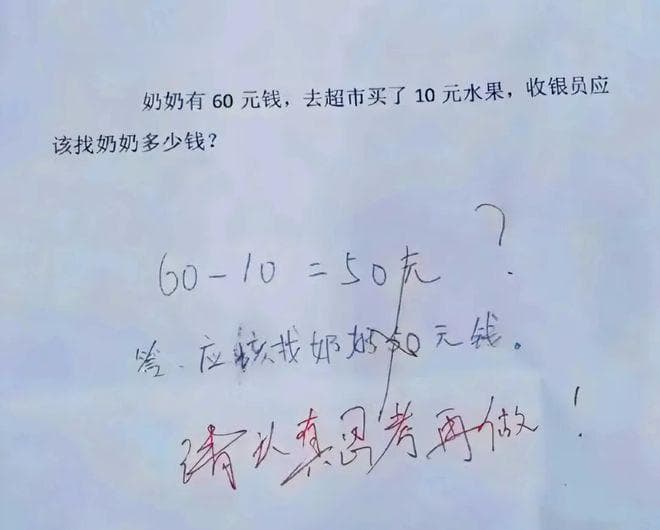 奶奶有 60 元钱，去超市买了 10 元水果，收银员应
该找奶奶多少钱？
?
60-10=50元
答、应该找奶奶50元钱。
请认真思考再做！